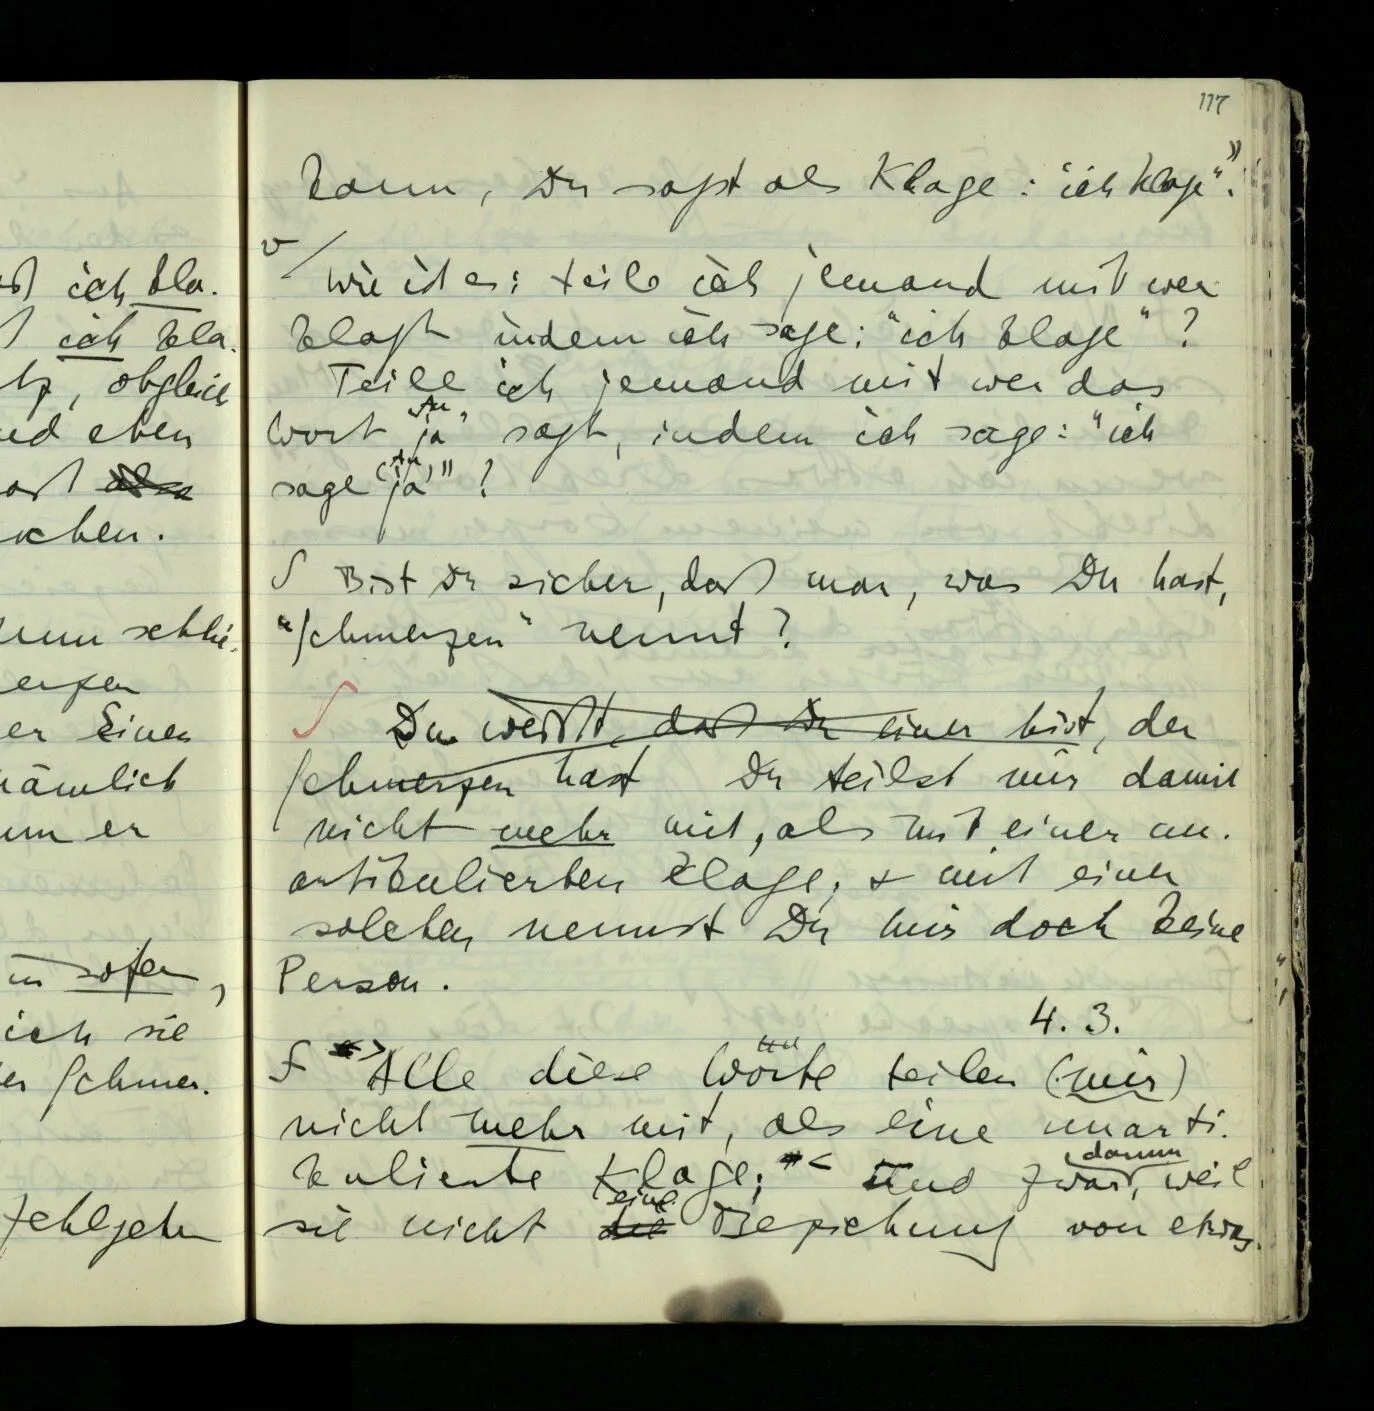 ich kla.
ich kla.
obgleich
eben
also
schlie.
er Einen
nämlich
um er
sofern,
ich sie
er Schmer.
fehlgehn
117
kann, Du sagst als Klage: “ich klage”.”
Wie ist es: teile ich jemand mit wer
klagt indem ich sage: “ich klage” ?
Teile ich jemand mit wer das
Wort “ja” sagt, indem ich sage: “ich
sage ‘ja’” ?
∫ Bist Du sicher, daß man, was Du hast,
“Schmerzen” nennt ?
∫ Du weißt, daß Du einer bist, der
Schmerzen hast Du teilst mir damit
nicht mehr mit, als mit einer un.
artikulierten Klage, & mit einer
solchen nennst Du mir doch keine
Person.
4. 3.
Alle diese Worte teilen (mir)
nicht mehr mit, als eine unarti.
kulierte Klage; Und zwar, darum weil
sie nicht die eine Beziehung von etwas